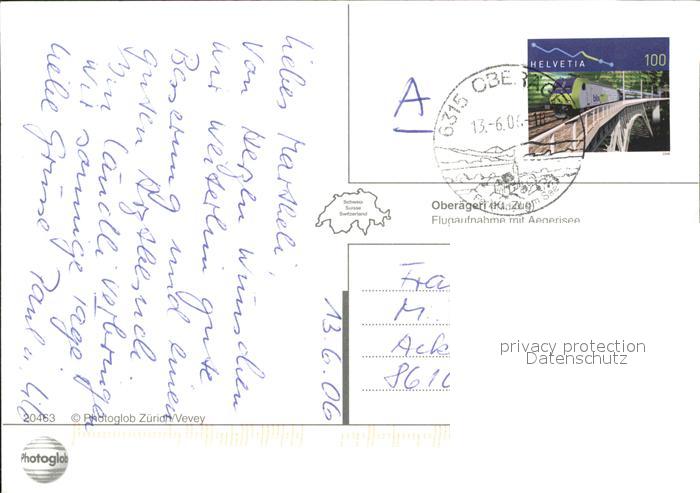 Liebes Martheli,
Von Herzen wünschen
wir weiterhin gute
Besserung und einen
guten Arztbesuch
Im Ländli verbringen
wir sonnige Tage
Liebe Grüsse Paul u.
13.6.06
A
HELVETIA 100
6315 OBERÄGERI
13.-6.06-
Schweiz
Suisse
Switzerland
Oberägeri (Kt. Zug)
Flugaufnahme mit Aegerisee
Fra
M.
Ack
8610
privacy protection
Datenschutz
20463 © Photoglob Zürich/Vevey
Photoglob